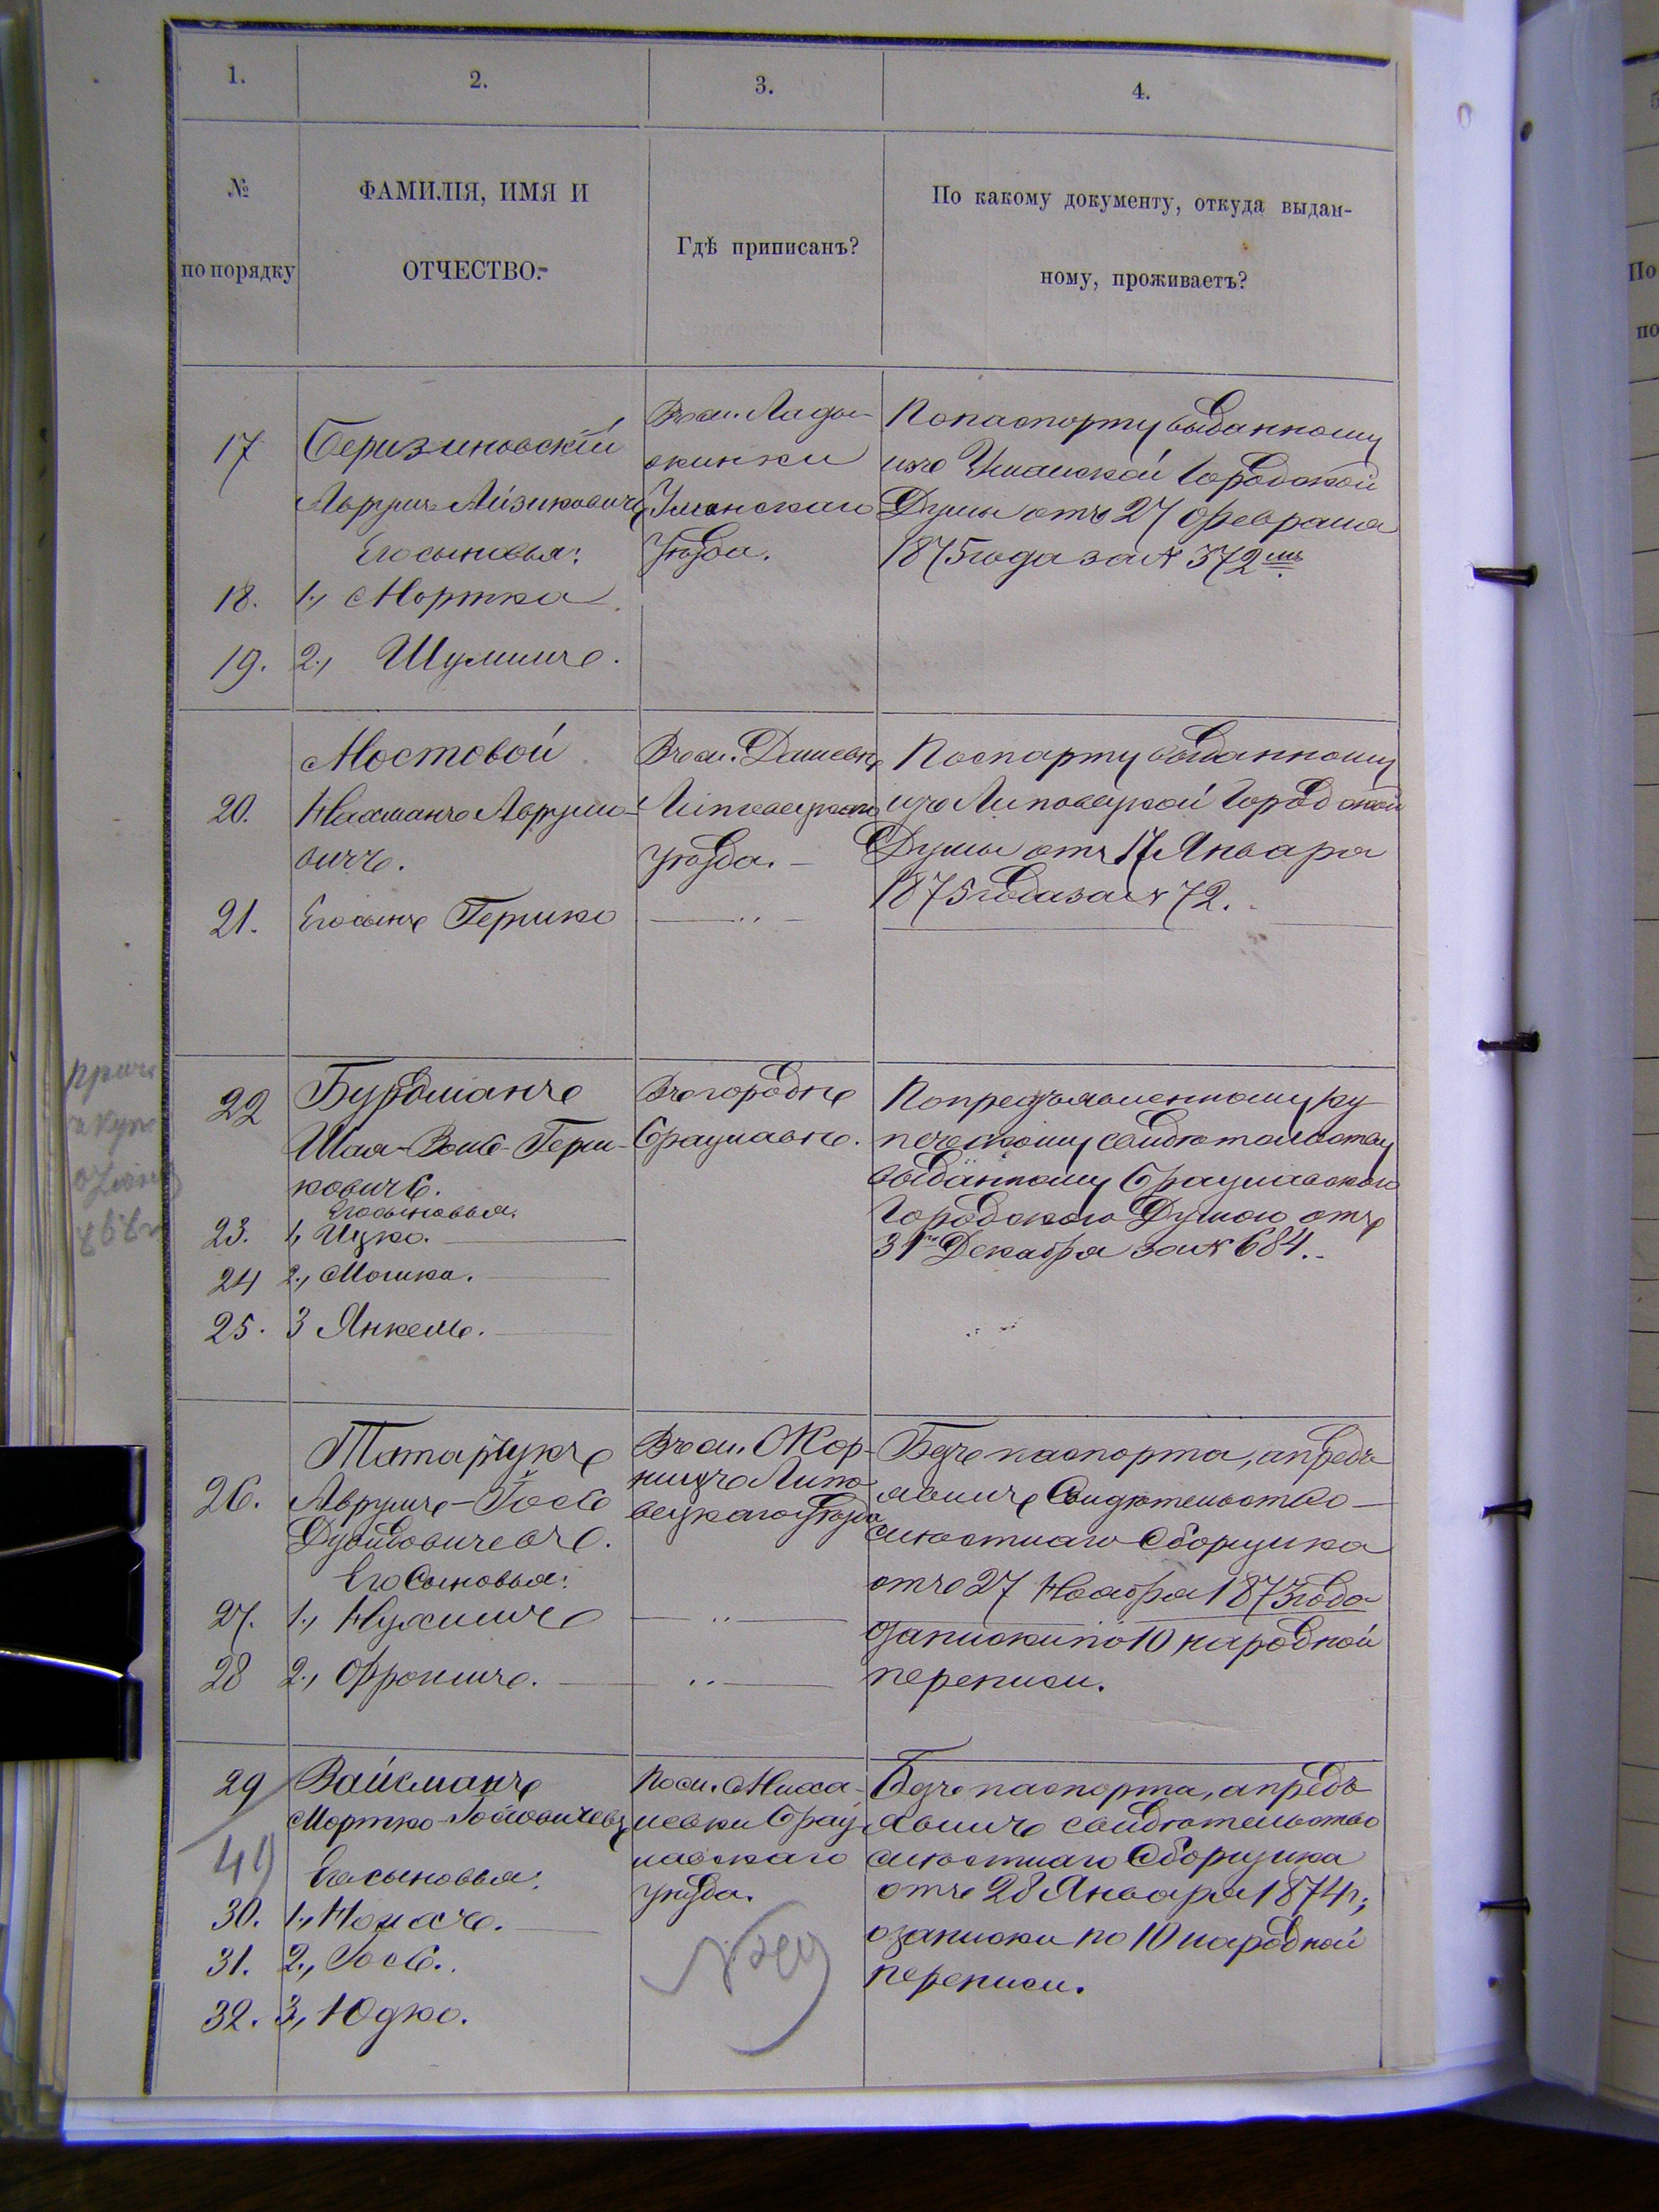 1.
2.
3.
4.
№
по порядку
ФАМИЛІЯ, ИМЯ И
ОТЧЕСТВО.
Гдѣ приписанъ?
По какому документу, откуда выдан-
ному, проживаетъ?
17
Беризиновскій
Аврумъ Айзиковичъ
Его сыновья:
18. 1., Мортко
19. 2., Шулимъ.
Въ м. Лады-
жинки
Уманскаго
Уѣзда.
По паспорту выданному
изъ Уманской Городской
Думы отъ 27 Февраля
1875 года за № 372 мъ
Мостовой
20. Нахманъ Аврумо-
вичъ.
21. Его сынъ Гершко
Въ м. Дашевѣ
Липовецкаго
уѣзда. –
Паспарту выданному
изъ Липовецкой Городской
Думы отъ 17 Января
1875 года за № 72.
22
Бурдманъ
Шая-Вольф-Герш-
ковичъ.
Его сыновья.
23. 1, Ицко.
24 2., Мошка.
25. 3 Янкель.
Въ городѣ
Брацлавѣ.
По предъявленному ку
печескому свидѣтельству
выданному Брацлавскою
Городскою Думою отъ
31 го Декабря за № 684.
26.
Татарчукъ
Аврумъ-Іось
Дувидовичевъ.
Его Сыновья:
27. 1., Нухимъ
28 2., Фроимъ.
Въ м. Жор-
нищъ Липо-
вецкаго Уѣзда
Безъ паспорта, а предъ
явилъ Свидѣтельство
мѣстнаго Сборщика
отъ 27 Ноября 1873 года
о запискѣ по 10 народной
переписи.
29
Вайсманъ
Мортко Іосіовичевъ
Его сыновья:
30. 1., Нонахъ.
31. 2., Іось.
32. 3., Юдко.
По м. Михай-
левки Брац
лавскаго
уѣзда.
Безъ паспорта, а предъ
явилъ свидѣтельство
мѣстнаго Сборщика
отъ 28 Января 1874 г.,
о запискѣ по 10 народной
переписи.